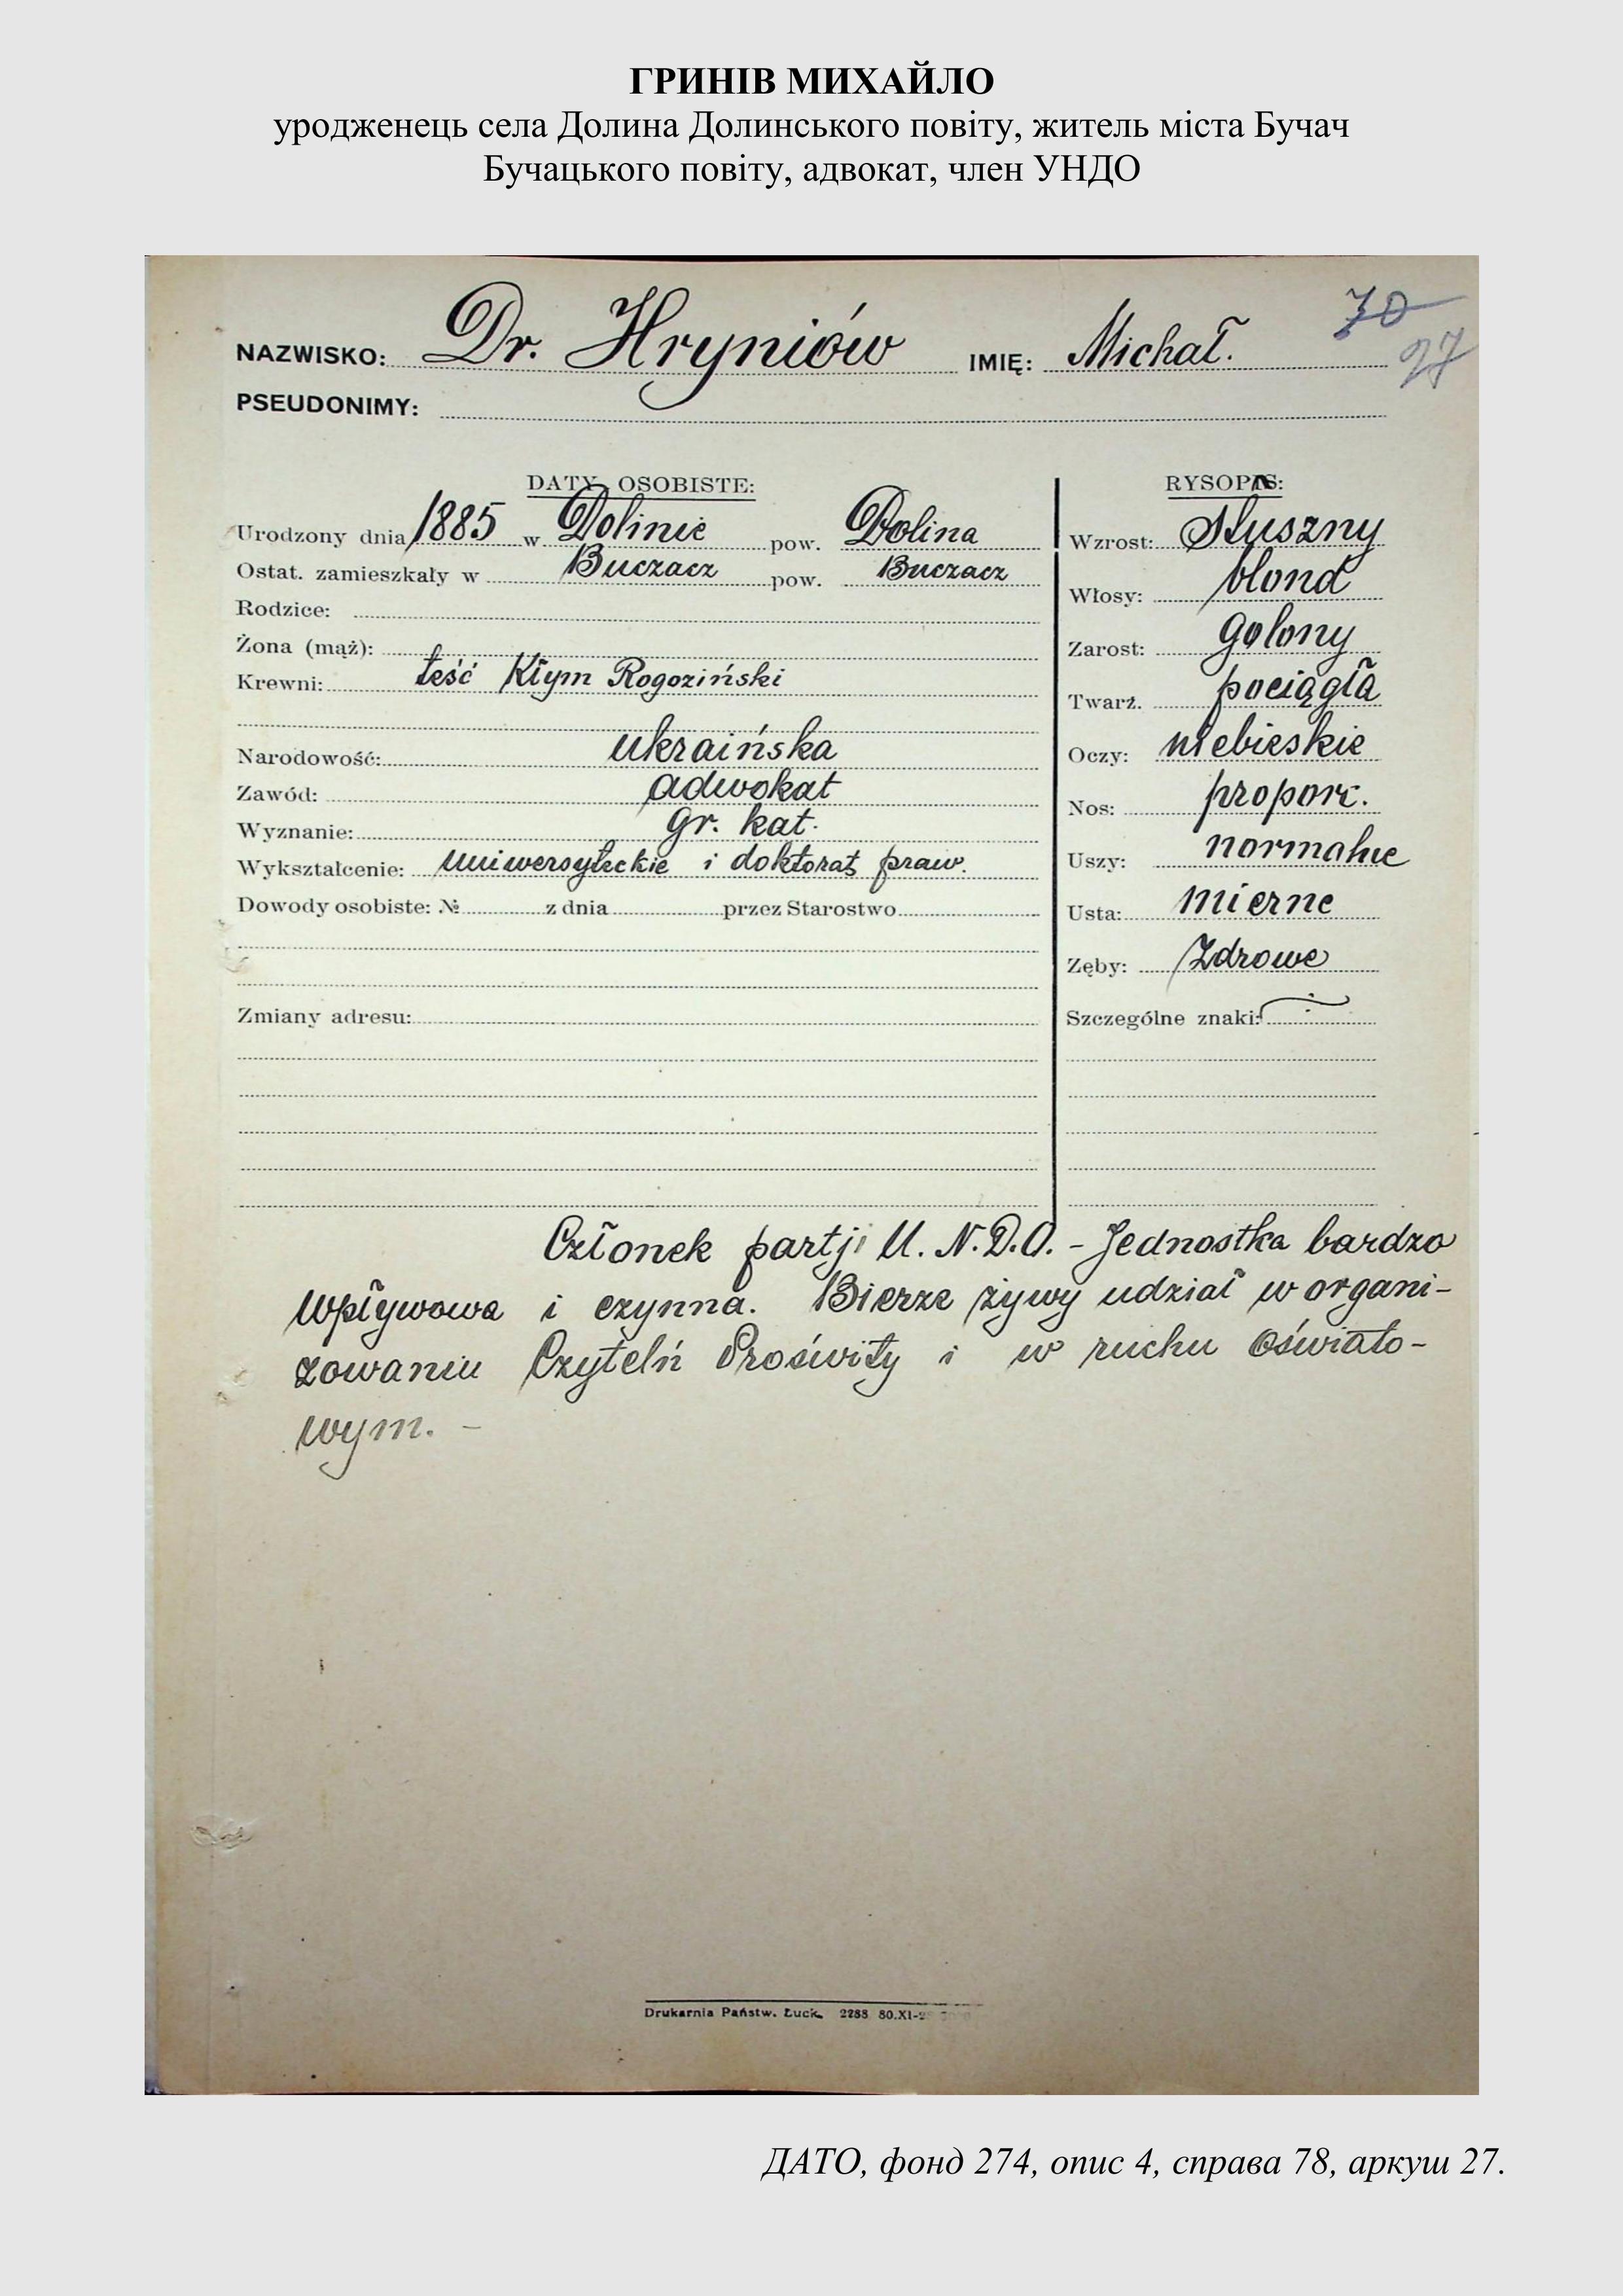 ГРИНІВ МИХАЙЛО
уродженець села Долина Долинського повіту, житель міста Бучач
Бучацького повіту, адвокат, член УНДО
70
27
NAZWISKO: Dr. Hryniów IMIĘ: Michał.
PSEUDONIMY:
DATY OSOBISTE:
Urodzony dnia 1885 w Dolinie pow. Dolina
Ostat. zamieszkały w Buczacz pow. Buczacz
Rodzice:
Żona (mąż):
Krewni: teść Kłym Rogoziński
Narodowość: ukraińska
Zawód: adwokat
Wyznanie: gr. kat.
Wykształcenie: uniwersyteckie i doktorat praw.
Dowody osobiste: № z dnia przez Starostwo
Zmiany adresu:
RYSOPIS:
Wzrost: Słuszny
Włosy: blond
Zarost: golony
Twarź. pociągła
Oczy: niebieskie
Nos: proporc.
Uszy: normalne
Usta: mierne
Zęby: Zdrowe
Szczególne znaki:
Członek partji U. N. D. O. - Jednostka bardzo
wpływowa i czynna. Bierze żywy udział w organi-
zowaniu Czytelń Proświty i w ruchu oświato-
wym. -
Drukarnia Państw. Łuck. 2288 30.XI-2
ДАТО, фонд 274, опис 4, справа 78, аркуш 27.